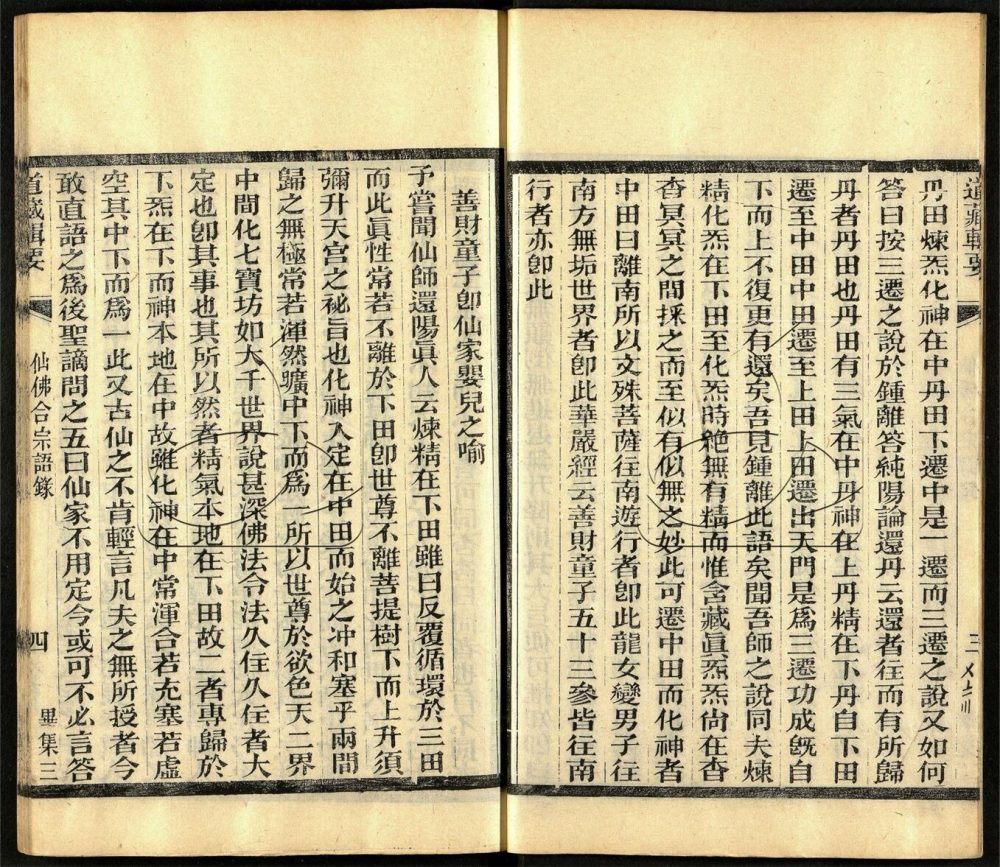 道藏輯要
三
丹田煉炁化神在中丹田下遷中是一遷而三遷之說又如何
答曰按三遷之說於鍾離答純陽論還丹云還者往而有所歸
丹者丹田也丹田有三氣在中丹神在上丹精在下丹自下田
遷至中田中田遷至上田上田遷出天門是爲三遷功成旣自
下而上不復更有還矣吾見鍾離此語矣聞吾師之說同夫煉
精化炁在下田至化炁時絶無有精而惟含藏眞炁炁尙在杳
杳冥冥之間採之而至似有似無之妙此可遷中田而化神者
中田曰離南所以文殊菩薩往南遊行者卽此龍女變男子往
南方無垢世界者卽此華嚴經云善財童子五十三參皆往南
行者亦卽此
善財童子卽仙家嬰兒之喻
予嘗聞仙師還陽眞人云煉精在下田雖曰反覆循環於三田
而此眞性常若不離於下田卽世尊不離菩提樹下而上升須
彌升天宮之祕旨也化神入定在中田而始之冲和塞乎兩間
歸之無極常若渾然曠中下而爲一所以世尊於欲色天二界
中間化七寶坊如大千世界說甚深佛法令法久住久住者大
定也卽其事也其所以然者精氣本地在下田故二者專歸於
下炁在下而神本地在中故雖化神在中常渾合若充塞若虛
空其中下而爲一此又古仙之不肯輕言凡夫之無所授者今
敢直語之爲後聖謫問之五曰仙家不用定今或可不必言答
道藏輯要
仙佛合宗語錄
四
畢集三